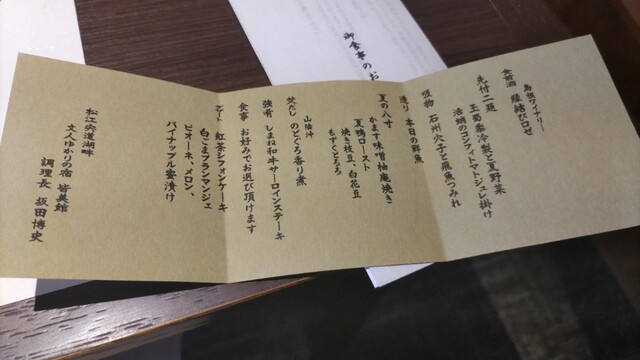 御食事のお
島根ワイナリー
食前酒 縁結びロゼ
先付二題
玉蜀黍冷製と夏野菜
活蛸のコンフィトマトジュレ掛け
吸物 石州穴子と飛魚つみれ
造り 本日の鮮魚
夏の八寸
かます味噌柚庵焼き
夏鴨ロースト
焼き枝豆、白花豆
もずくとろろ
山陰沖
焚だし のどぐろ香り煮
強肴 しまね和牛サーロインステーキ
食事 お好みでお選び頂けます
デザート 紅茶シフォンケーキ
白ごまブランマンジェ
ピオーネ、メロン、
パイナップル蜜漬け
松江宍道湖畔
文人ゆかりの宿 皆美館
調理長 坂田博史